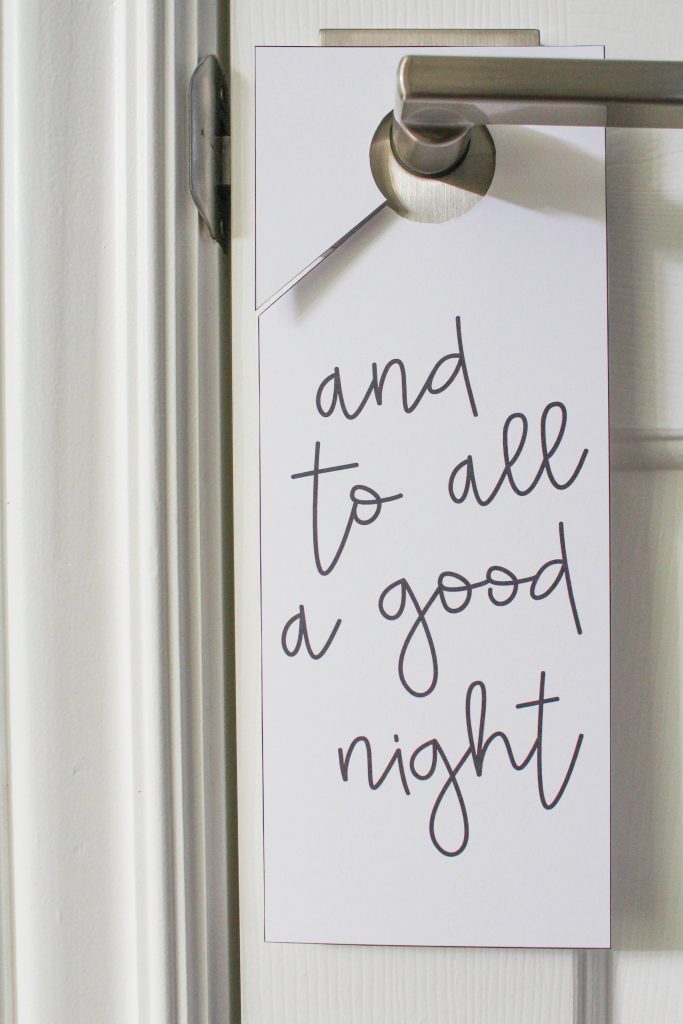 and
to all
a good
night